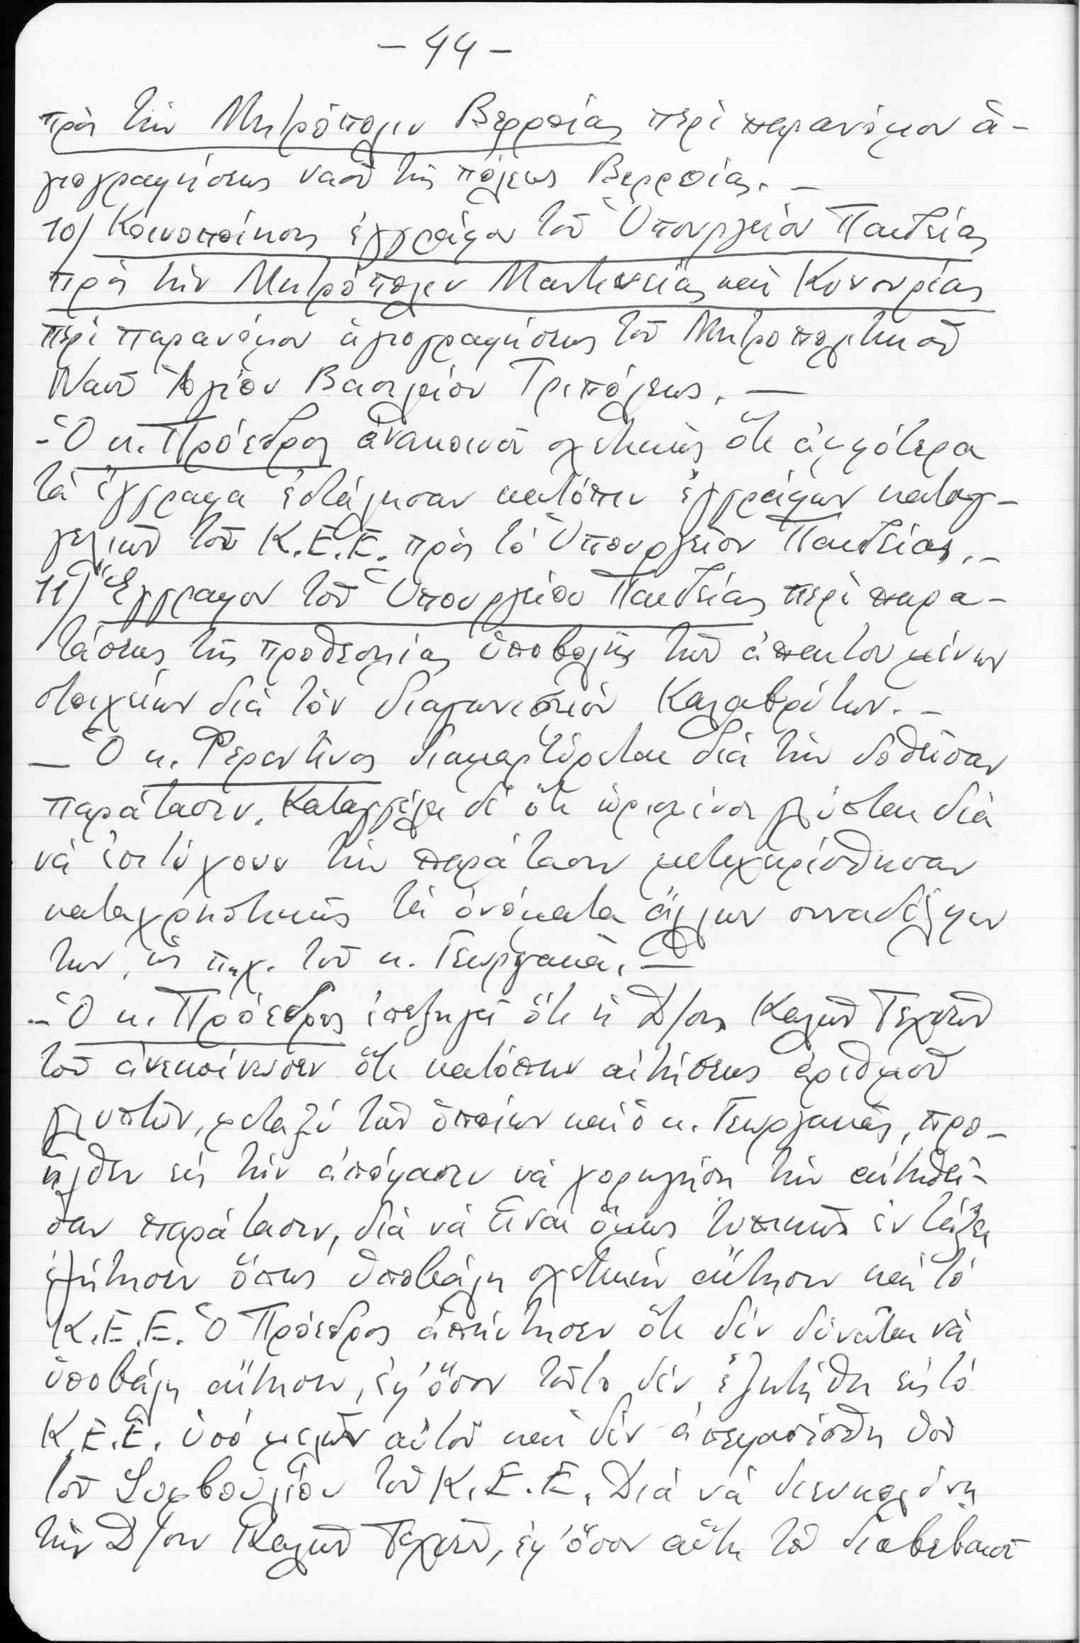 - 44 -
πρὸς τὴν Μητρόπολιν Βερροίας περὶ παρανόμου ἁ-
γιογραφήσεως ναοῦ τῆς πόλεως Βερροίας. -
10/ Κοινοποίησις ἐγγράφου τοῦ Ὑπουργείου Παιδείας
πρὸς τὴν Μητρόπολιν Μαντινείας καὶ Κυνουρίας
περὶ παρανόμου ἁγιογραφήσεως τοῦ Μητροπολιτικοῦ
Ναοῦ Ἁγίου Βασιλείου Τριπόλεως. -
- Ὁ κ. Πρόεδρος ἀνακοινοῖ σχετικῶς ὅτι ἀμφότερα
τὰ ἔγγραφα ἐστάλησαν κατόπιν ἐγγράφων καταγ-
γελιῶν τοῦ Κ.Ε.Ε. πρὸς τὸ Ὑπουργεῖον Παιδείας. -
11/ Ἔγγραφον τοῦ Ὑπουργείου Παιδείας περὶ παρα-
τάσεως τῆς προθεσμίας ὑποβολῆς τῶν ἀπαιτουμένων
στοιχείων διὰ τὸν διαγωνισμὸν Καλαβρύτων. -
- Ὁ κ. Φεραντῖνος διαμαρτύρεται διὰ τὴν δοθεῖσαν
παράτασιν. Καταγγέλει δὲ ὅτι ὡρισμένοι γλύπται διὰ
νὰ ἐπιτύχουν τὴν παράτασιν μετεχειρίσθησαν
καταχρηστικῶς τὰ ὀνόματα ἄλλων συναδέλφων
των, ὡς π.χ. τοῦ κ. Γεωργακᾶ. -
- Ὁ κ. Πρόεδρος ἐπεξηγεῖ ὅτι ἡ Δ/σις Καλῶν Τεχνῶν
τοῦ ἀνεκοίνωσεν ὅτι κατόπιν αἰτήσεως ἀριθμοῦ
γλυπτῶν, μεταξὺ τῶν ὁποίων καὶ ὁ κ. Γεωργακᾶς, προ-
ῆλθεν εἰς τὴν ἀπόφασιν νὰ χορηγήσῃ τὴν αἰτηθεῖ-
σαν παράτασιν, διὰ νὰ εἶναι ὅμως τυπικῶς ἐν τάξει
ἐζήτησεν ὅπως ὑποβάλῃ σχετικὴν αἴτησιν καὶ τὸ
Κ.Ε.Ε. Ὁ Πρόεδρος ἀπήντησεν ὅτι δὲν δύναται νὰ
ὑποβάλῃ αἴτησιν, ἐφ' ὅσον τοῦτο δὲν ἐζητήθη εἰς τὸ
Κ.Ε.Ε. ὑπὸ μελῶν αὐτοῦ καὶ δὲν ἀπεφασίσθη ὑπὸ
τοῦ Συμβουλίου τοῦ Κ.Ε.Ε. Διὰ νὰ διευκολύνῃ
τὴν Δ/σιν Καλῶν Τεχνῶν, ἐφ' ὅσον αὕτη τὸν διαβεβαιοῖ